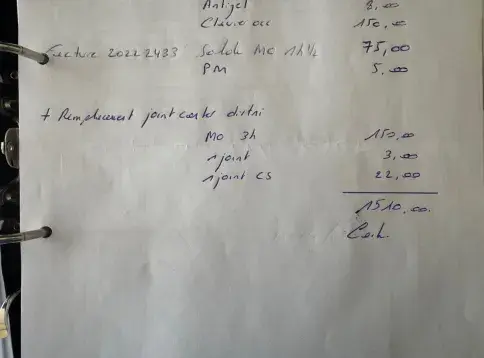 Antigel 8,00
150,00
Facture 20222433 MO 1h½ 75,00
PM 5,00
+ Remplacement joint carter distri
MO 3h 150,00
1 joint 3,00
1 joint CS 22,00
1510,00
Cash